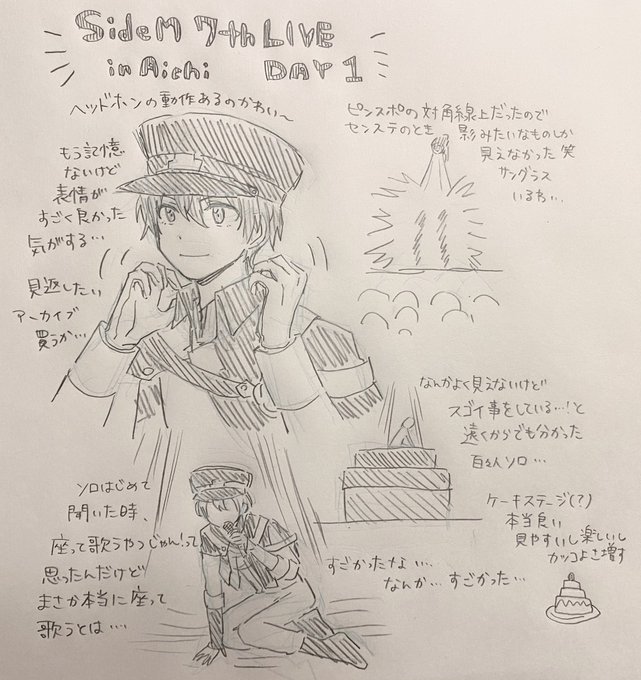 SideM 7th LIVE
in Aichi DAY 1
ヘッドホンの動作あるのかわい〜
もう記憶
ないけど
表情が
すごく良かった
気がする…
見返したい
アーカイブ
買うか…
ピンスポの対角線上だったので
センステのとき 影みたいなものしか
見えなかった 笑
サングラス
いるわ…
なんかよく見えないけど
スゴイ事をしている…!と
遠くからでも分かった
百々人ソロ…
ケーキステージ(?)
本当良い
見やすいし楽しいし
カッコよさ増す
ソロはじめて
聞いた時、
座って歌うやつじゃん!って
思ったんだけど
まさか本当に座って
歌うとは…
すごかったな…
なんか…すごかった…